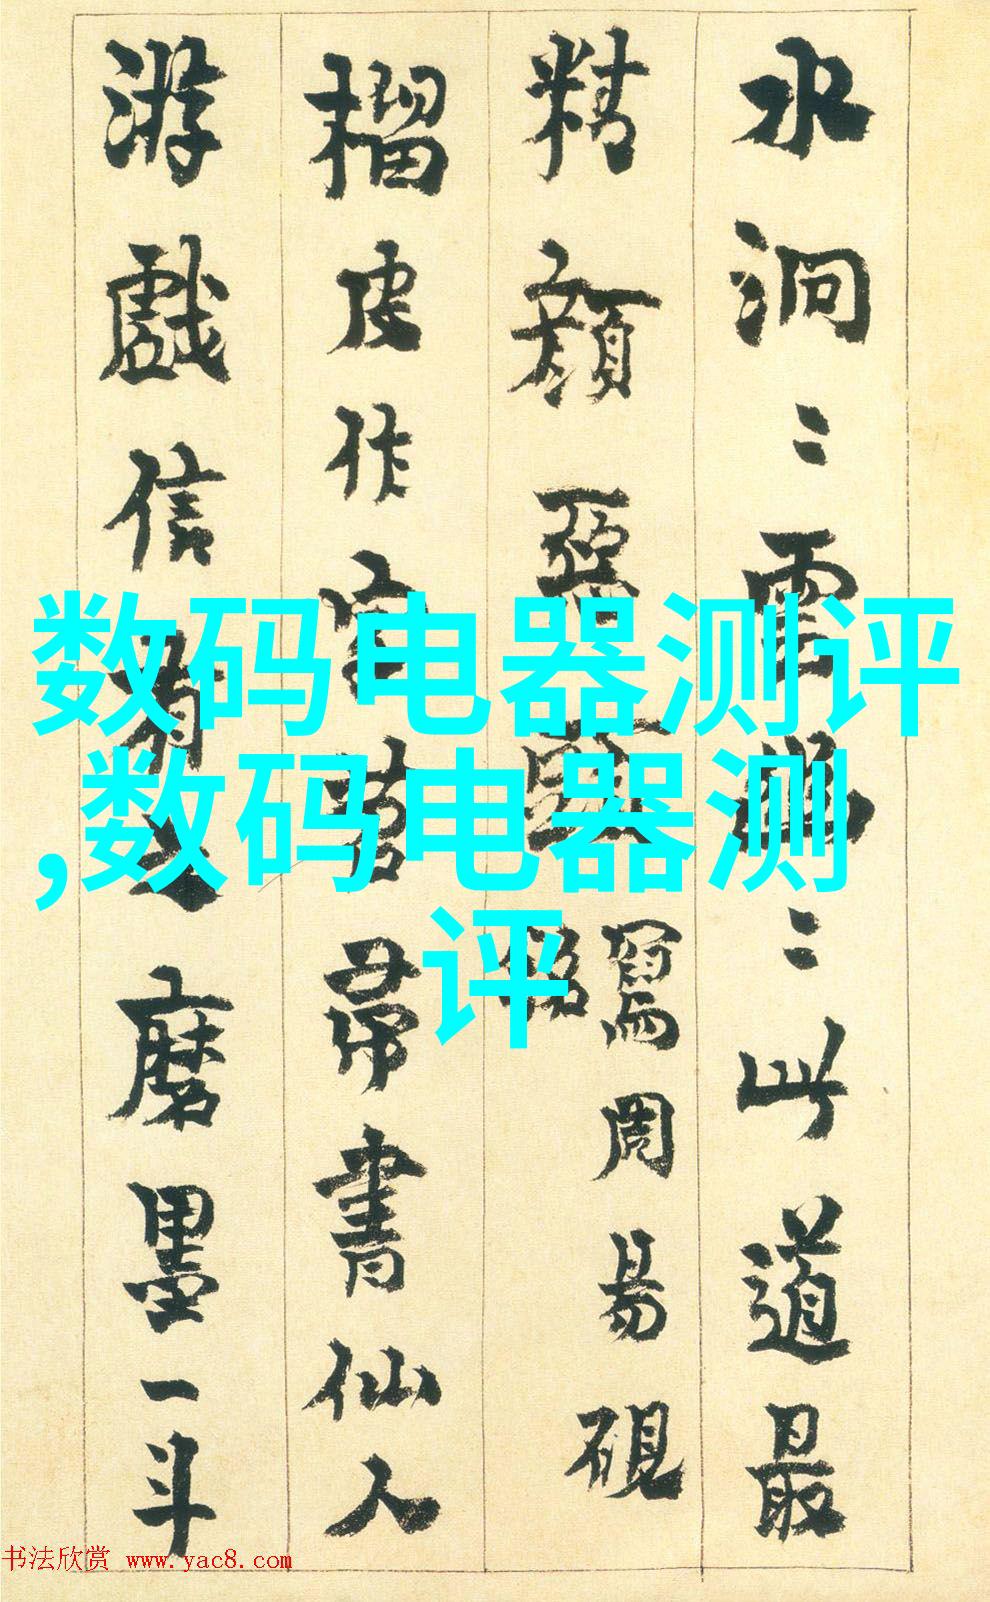 水洞〻雲〻此道最
精顏惡寫周易硯
榴皮作字苕帚書仙人
游戲信有之磨墨一斗
数码电器测评
,数码电器测
评
书法欣赏 www.yac8.com